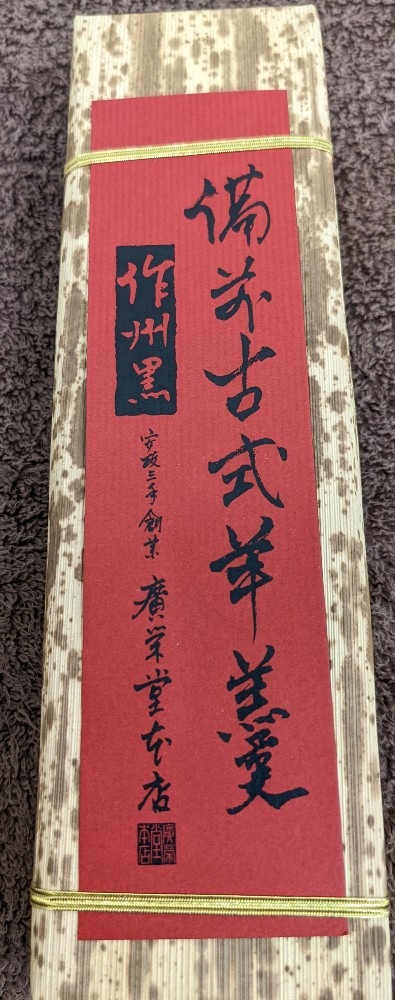 備前古式羊羹
作州黒
安政三年創業
廣榮堂本店
廣榮堂本店